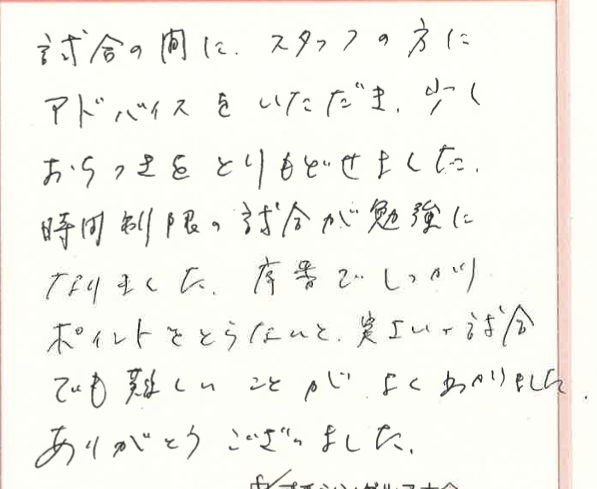 試合の間に、スタッフの方に
アドバイスをいただき、少し
おちつきをとりもどせました。
時間制限の試合が勉強に
なりました。序番でしっかり
ポイントをとらないと、実力いの試合
でも難しいことが よくわかりました。
ありがとうございました。